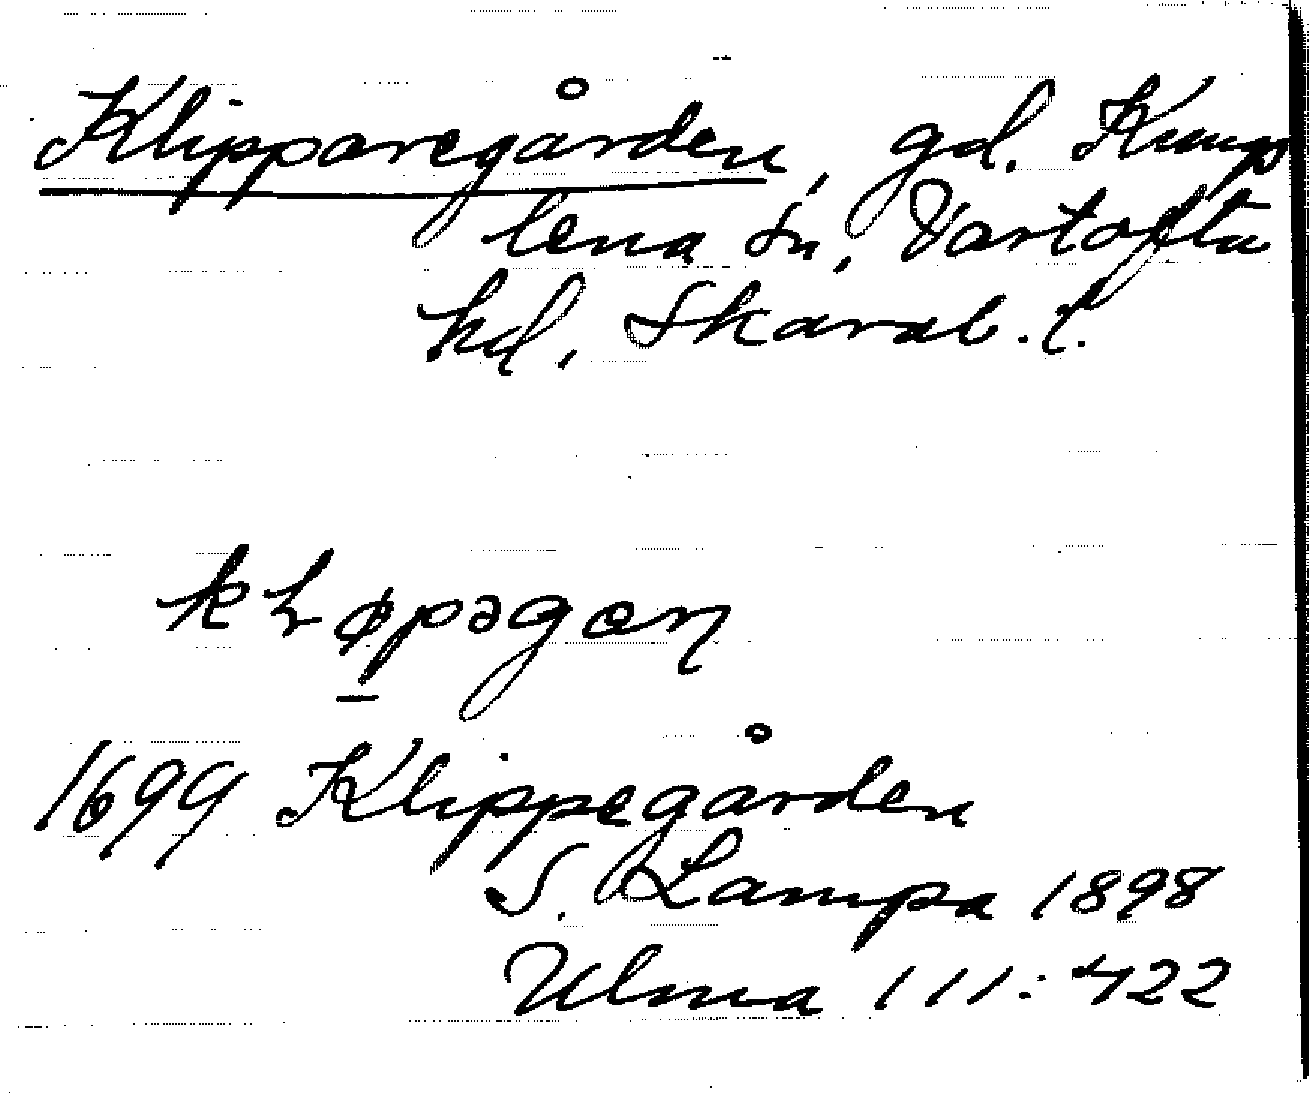 Klipparegården, gd. Kump
lena sn, Vartofta
hd, Skarab. l.
kłøpəgɑn
1699 Klippegården
S. Lampa 1898
Ulma 111:422